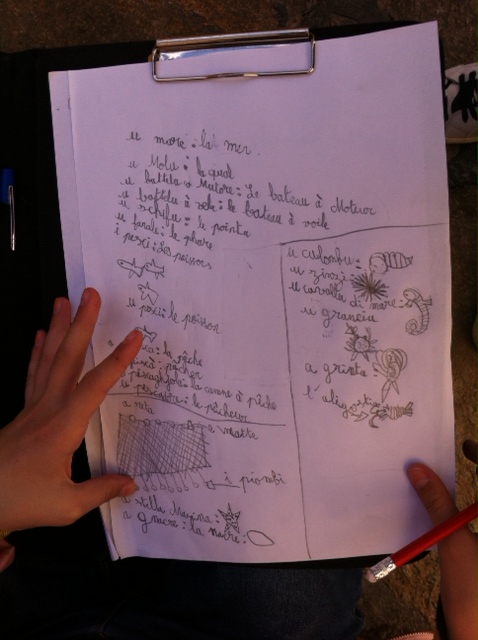 u mare : la mer
u Molu : le quai
u battilu à Mutore : Le bateau à Moteur
u battellu à vele : le bateau à voile
u schifu : le pointu
u fanale : le phare
i pesci : Les poissons
u pesciu : le poisson
a pesca : la pêche
piscà : pêcher
a piscaghjola : la canne à pêche
u piscadore : le pêcheur
a reta
e natte
i piombi
a stella Marina :
a gnacre : la nacre :
u culombu :
u zinzi :
u cavallu di mare :
u granciu
a grita :
l'aligosta